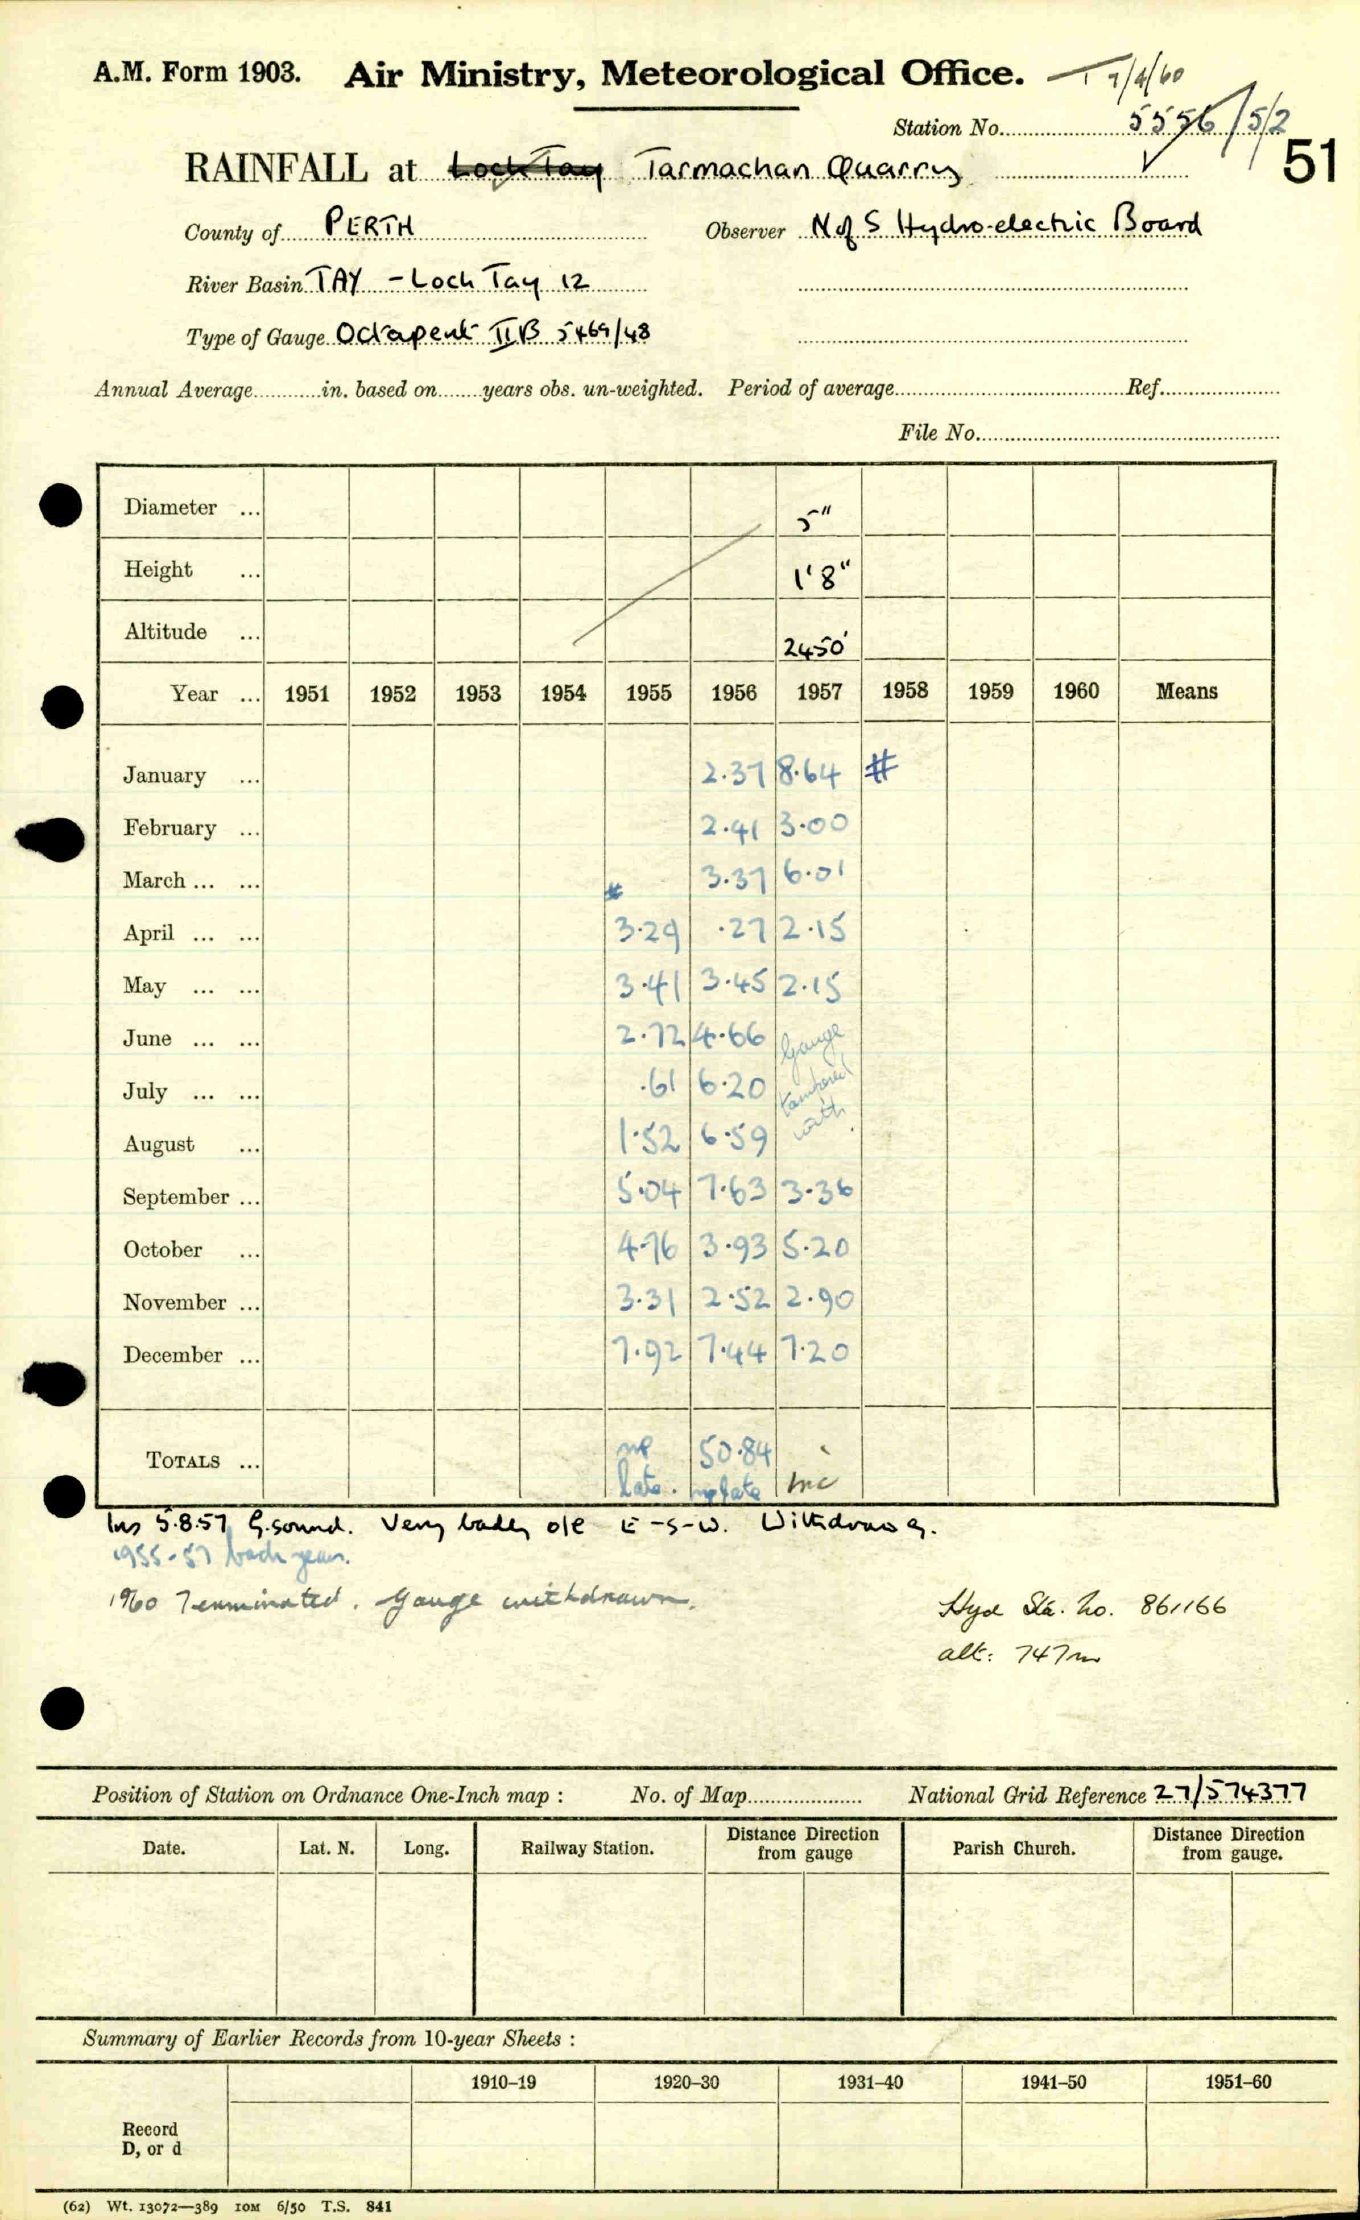 A.M. Form 1903. Air Ministry, Meteorological Office. T 7/4/60
Station No. 5556/5/2
51
RAINFALL at Loch Tay Tarmachan Quarry
County of PERTH Observer N of S Hydro-electric Board
River Basin TAY - Loch Tay 12
Type of Gauge Octapent IIB 5469/48
Annual Average in. based on years obs. un-weighted. Period of average Ref.
File No.
Diameter ... 5"
Height ... 1'8"
Altitude ... 2450'
Year ... 1951 1952 1953 1954 1955 1956 1957 1958 1959 1960 Means
January ... 2.37 8.64 #
February ... 2.41 3.00
March ... ... # 3.37 6.01
April ... ... 3.29 .27 2.15
May ... ... 3.41 3.45 2.15
June ... ... 2.72 4.66 Gauge
July ... ... .61 6.20 tampered
August ... 1.52 6.59 with.
September ... 5.04 7.63 3.36
October ... 4.76 3.93 5.20
November ... 3.31 2.52 2.90
December ... 7.92 7.44 7.20
TOTALS ... 50.84
late. late Inc
Ins 5.8.57 G.sound. Very badly o/e E-S-W. Withdraw g.
1955-57 back year.
1960 Terminated. Gauge withdrawn.
Hyd Sta. No. 861166
alt: 747m
Position of Station on Ordnance One-Inch map : No. of Map National Grid Reference 27/574377
Date. Lat. N. Long. Railway Station. Distance Direction from gauge Parish Church. Distance Direction from gauge.
Summary of Earlier Records from 10-year Sheets :
1910–19 1920–30 1931–40 1941–50 1951–60
Record
D, or d
(62) Wt. 13072—389 10M 6/50 T.S. 841